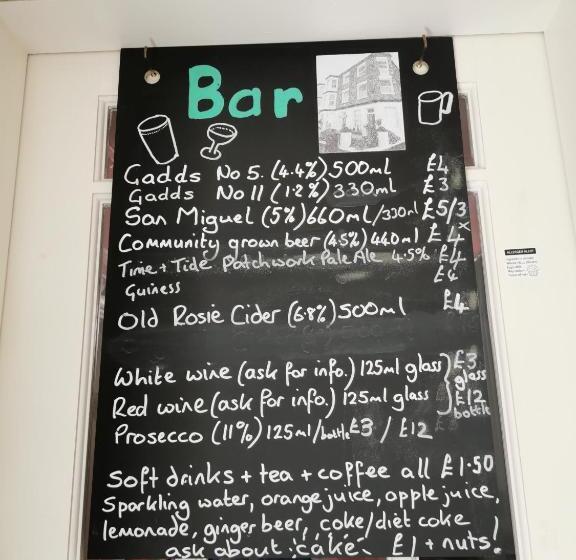 Bar
Gadds No 5. (4.4%) 500ml £4
Gadds No 11 (1.2%) 330ml £3
San Miguel (5%) 660ml/330ml £5/3
Community grown beer (4.5%) 440ml £4
Time + Tide Patchwork Pale Ale 4.5% £4
Guiness £4
Old Rosie Cider (6.8%) 500ml £4
White wine (ask for info.) 125ml glass £3 glass
Red wine (ask for info.) 125ml glass £12 bottle
Prosecco (11%) 125ml/bottle £3 / £12
Soft drinks + tea + coffee all £1.50
Sparkling water, orange juice, apple juice,
lemonade, ginger beer, coke/diet coke
ask about cake £1 + nuts!